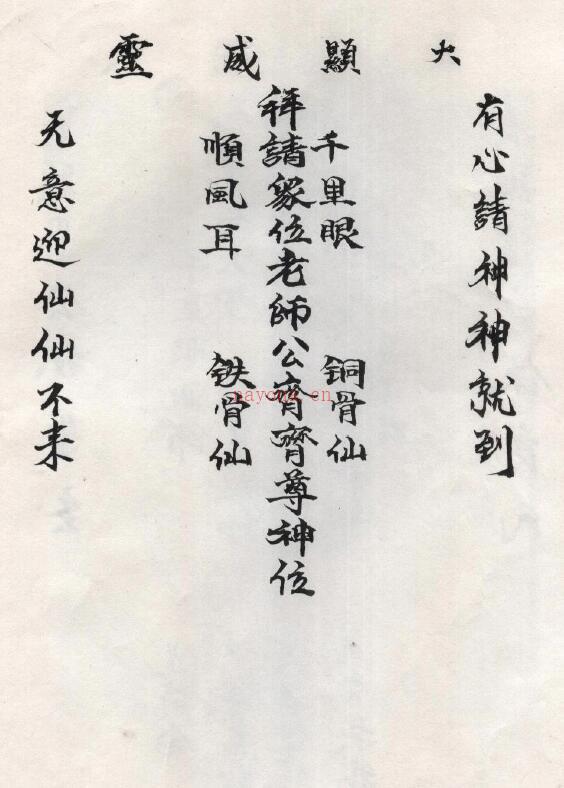 大顯威靈
有心請神神就到
千里眼 銅骨仙
拜請眾位老師公齊齊尊神位
順風耳 鉄骨仙
无意迎仙仙不来
nayona.cn